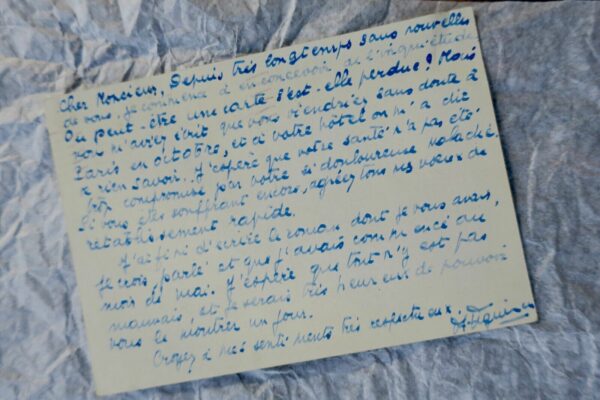 Cher Monsieur, Depuis très longtemps sans nouvelles
de vous, je commence à en concevoir de l'inquiétude.
Ou peut-être une carte s'est-elle perdue? Mais
vous m'aviez écrit que vous viendriez sans doute à
Paris en octobre, et à votre hôtel on m'a dit
ne rien savoir. J'espère que votre santé n'a pas été
trop compromise par votre si douloureuse maladie.
Si vous êtes souffrant encore, agréez tous mes voeux de
rétablissement rapide.
J'ai fini d'écrire le roman dont je vous avais,
je crois, parlé et que j'avais commencé au
mois de mai. J'espère que tout n'y est pas
mauvais, et je serais très heureux de pouvoir
vous le montrer un jour.
Croyez à mes sentiments très respectueux.